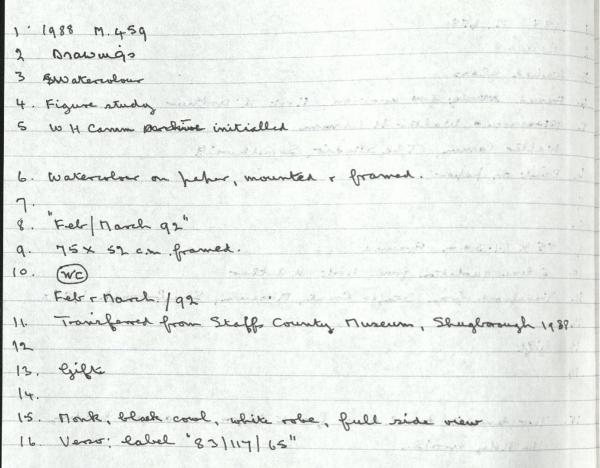 1. 1988 M.459
2 Drawings
3 Watercolour
4. Figure study
5 W H Camm initialled
6. Watercolour on paper, mounted & framed.
7.
8. "Feb/March 92"
9. 75 x 52 cm. framed.
10. WC
Feb & March/92
11. Transferred from Staffs County Museum, Shugborough 1988.
12
13. Gift
14.
15. Monk, black cowl, white robe, full side view
16. Verso: label "83/117/65"